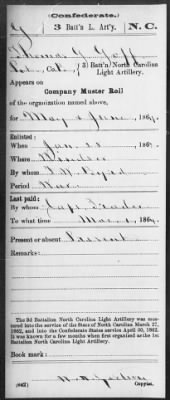 (Confederate.)
G 3 Batt'n L. Art'y. N.C.
Thomas J. Goff
Pvt., Co. , (3) Batt'n North Carolina
Light Artillery.
Appears on
Company Muster Roll
of the organization named above,
for May & June, 1864.
Enlisted:
When Jan. 28, 186
Where Windsor
By whom F. W. Byrd
Period War
Last paid:
By whom Capt.
To what time Mar. 1, 1864.
Present or absent Present
Remarks:
The 3d Battalion North Carolina Light Artillery was mustered
into the service of the State of North Carolina March 17,
1862, and into the Confederate States service April 30, 1862.
It was known for a few months when first organized as the 1st
Battalion North Carolina Light Artillery.
Book mark:
(642)
Copyist.